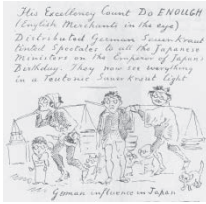 His Excellency Count Do ENOUGH
(English Merchants in the eye)
Distributed German Sauer Kraut
tinted Spectacles to all the Japanese
Ministers on the Emperor of Japan's
Birthday. They now see everything
in a Teutonic Sauer Kraut light
German influence in Japan